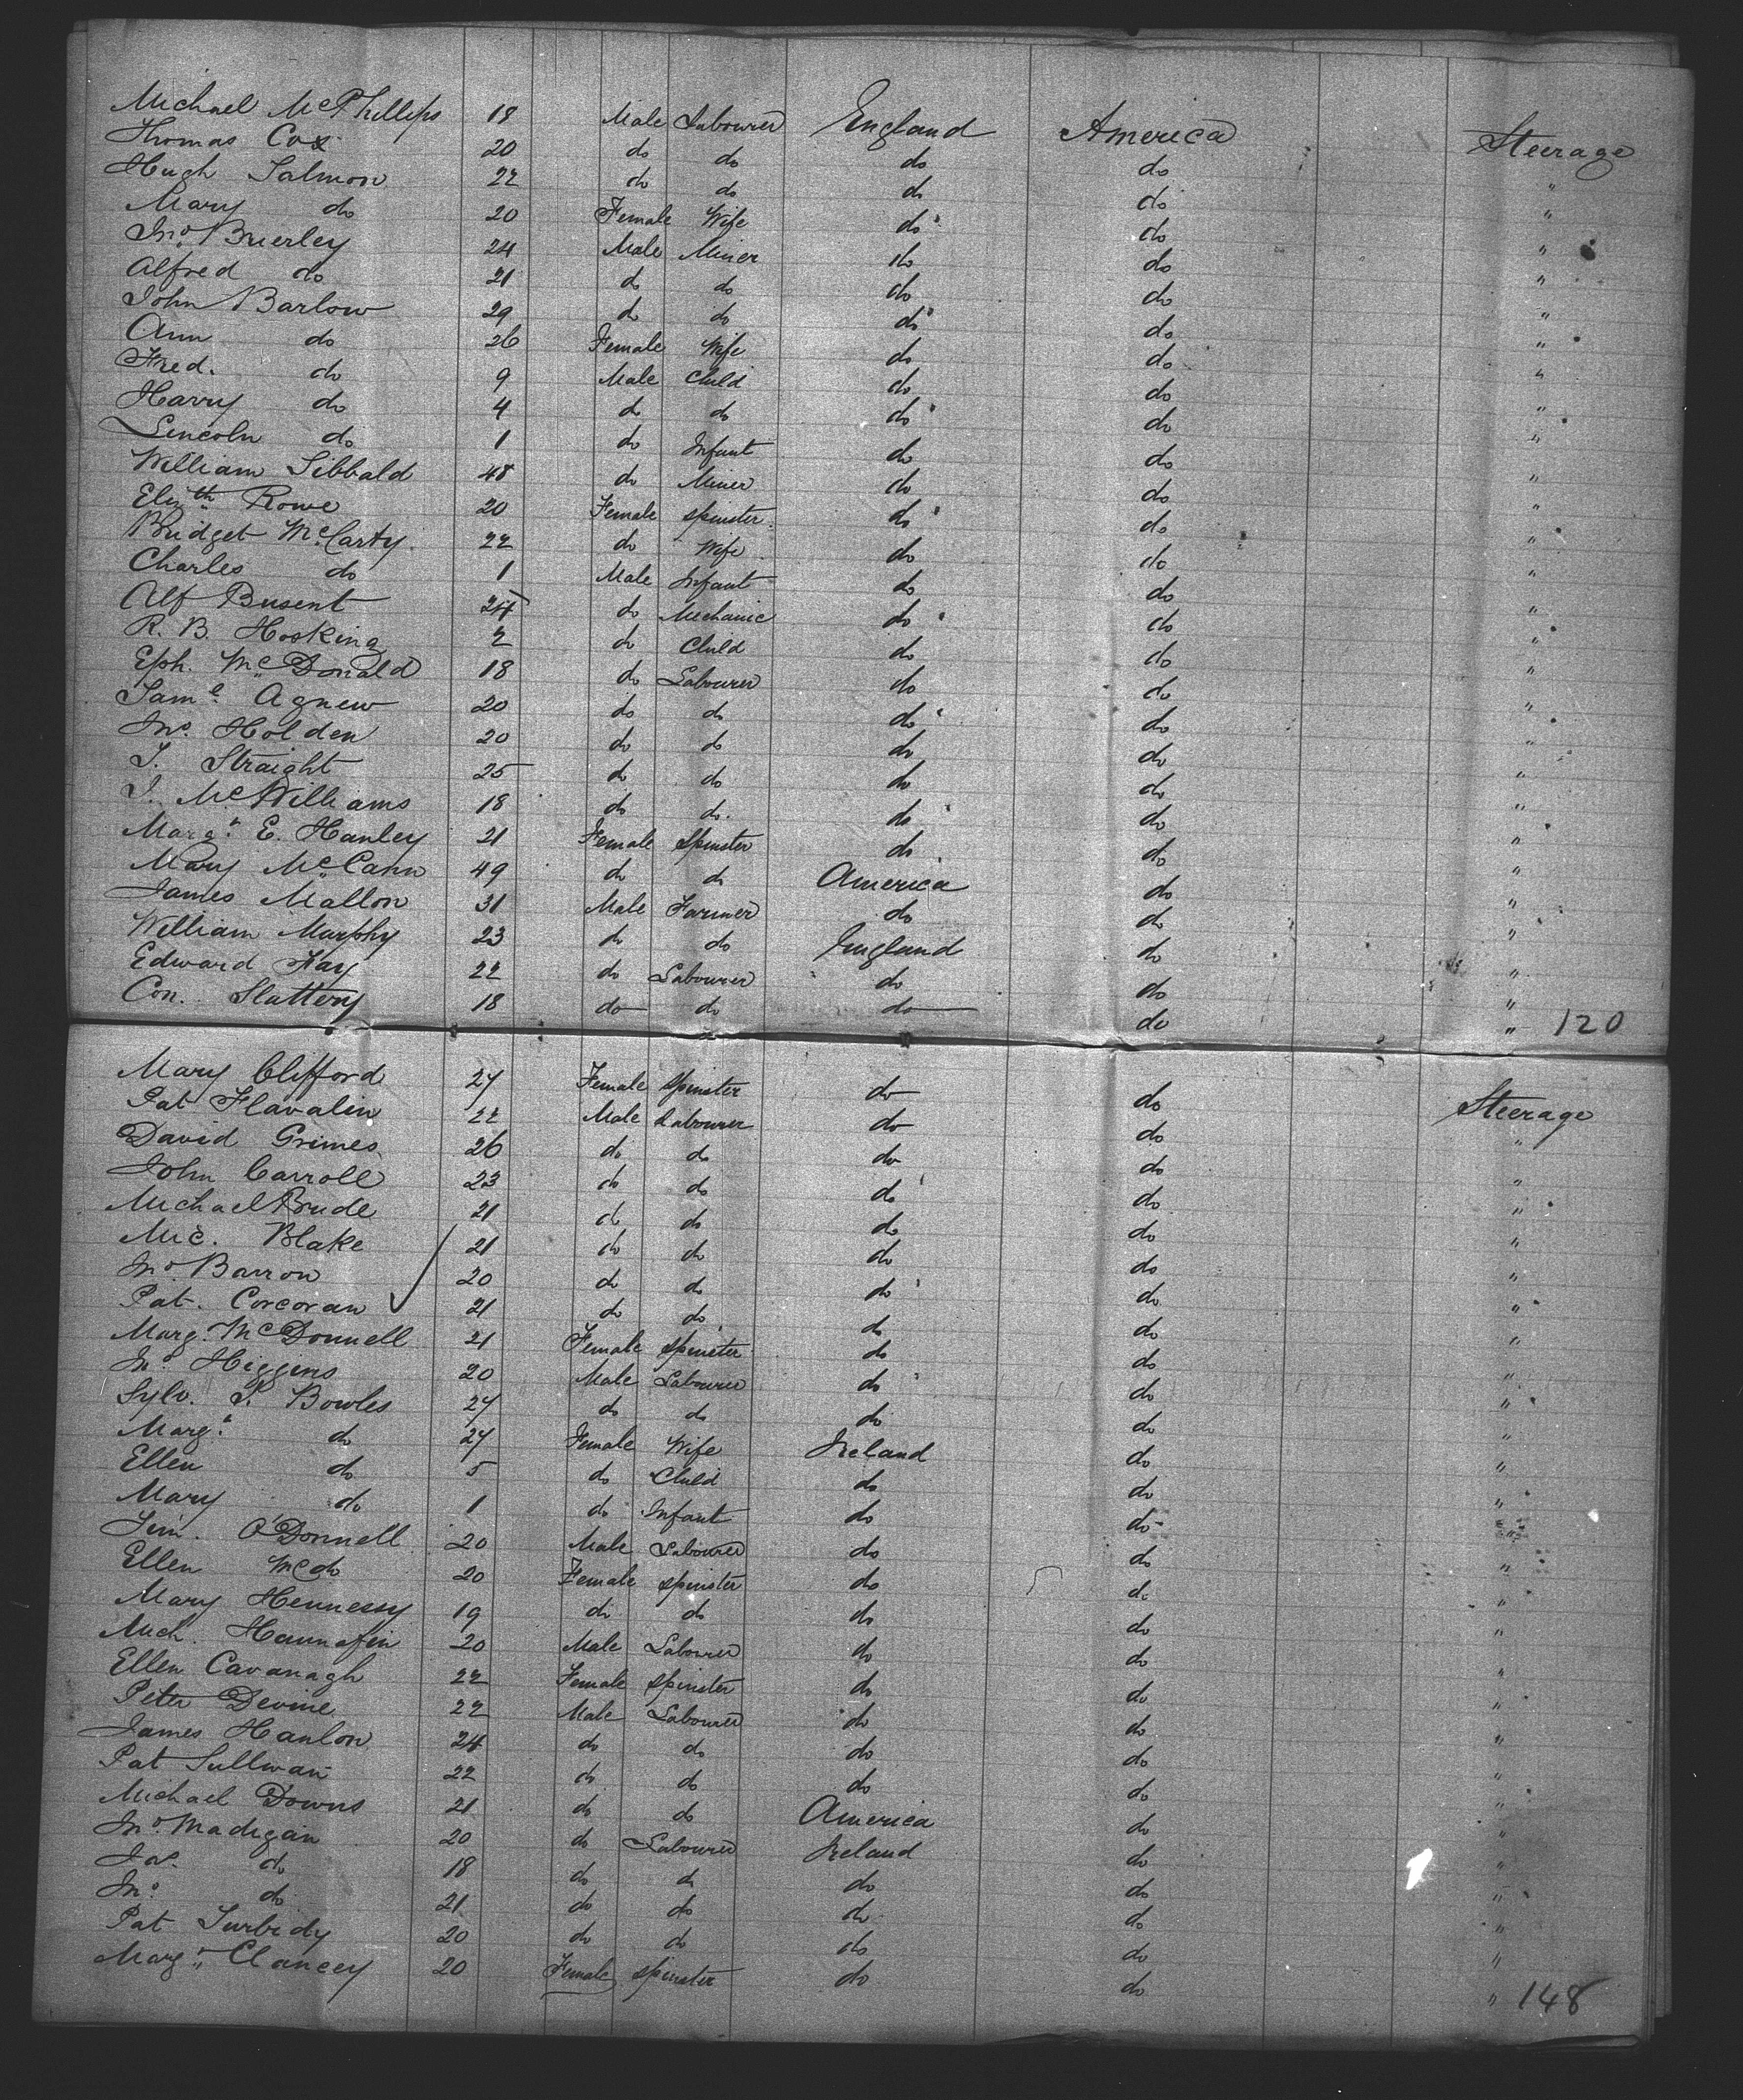 Michael McPhillips 18 Male Labourer England America Steerage
Thomas Cox 20 do do do do "
Hugh Salmon 22 do do do do "
Mary do 20 Female Wife do do "
Jno. Brierley 24 Male Miner do do "
Alfred do 21 do do do do "
John Barlow 29 do do do do "
Ann do 26 Female Wife do do "
Fred. do 9 Male Child do do "
Harry do 4 do do do do "
Lincoln do 1 do Infant do do "
William Sibbald 48 do Miner do do "
Elizth Rowe 20 Female Spinster do do "
Bridget McCarty. 22 do Wife do do "
Charles do 1 Male Infant do do "
Alf Busent 24 do Mechanic do do "
R. B. Hosking 2 do Child do do "
Eph. McDonald 18 do Labourer do do "
Saml. Agnew 20 do do do do "
Jno. Holden 20 do do do do "
T. Straight 25 do do do do "
J. McWilliams 18 do do. do do "
Margt. E. Hanley 21 Female Spinster do do "
Mary McCann 49 do do America do "
James Mallon 31 Male Farmer do do "
William Murphy 23 do do England do "
Edward Kay 22 do Labourer do do "
Con. Slattery 18 do do do do " 120
Mary Clifford 27 Female Spinster do do Steerage
Pat Flavalin 22 Male Labourer do do "
David Grimes 26 do do do do "
John Carroll 23 do do do do "
Michael Brude 21 do do do do "
Mic. Blake 21 do do do do "
Jno. Barron 20 do do do do "
Pat. Corcoran 21 do do do do "
Marg. McDonnell 21 Female Spinster do do "
Jno. Higgins 20 Male Labourer do do "
Sylv. P. Bowles 27 do do do do "
Margt. do 27 Female Wife Ireland do "
Ellen do 5 do Child do do "
Mary do 1 do Infant do do "
Jim. O'Donnell 20 Male Labourer do do "
Ellen Mcdo 20 Female Spinster do do "
Mary Hennessy 19 do do do do "
Mich. Hannafin 20 Male Labourer do do "
Ellen Cavanagh 22 Female Spinster do do "
Peter Devine 22 Male Labourer do do "
James Hanlon 24 do do do do "
Pat Sullivan 22 do do do do "
Michael Downs 21 do do America do "
Jno. Madigan 20 do Labourer Ireland do "
Jas. do 18 do do do do "
Jno. do 21 do do do do "
Pat Turbidy 20 do do do do "
Margt. Clancey 20 Female Spinster do do " 148